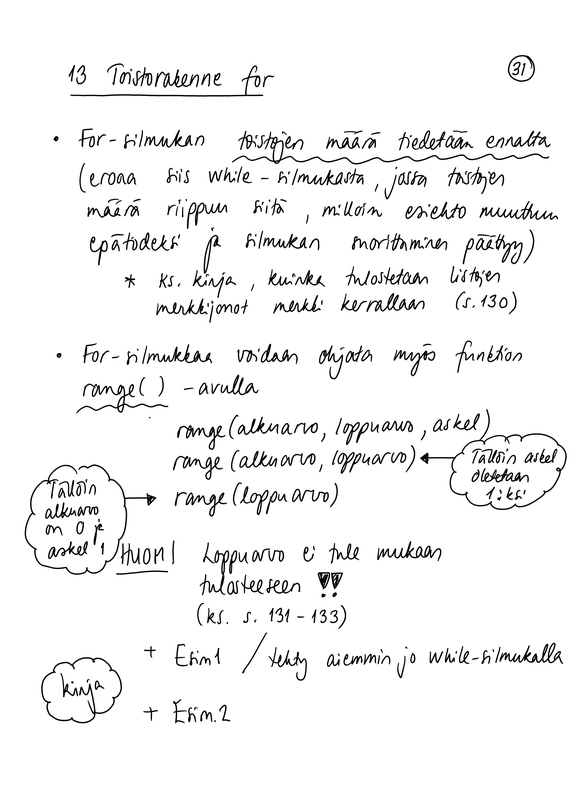 13 Toistorakenne for
31
• For-silmukan toistojen määrä tiedetään ennalta
(eroaa siis while-silmukasta, jossa toistojen
määrä riippuu siitä, milloin esiehto muuttuu
epätodeksi ja silmukan suorittaminen päättyy)
* ks. kirja, kuinka tulostetaan listojen
merkkijonot merkki kerrallaan (s.130)
• For-silmukkaa voidaan ohjata myös funktion
range() -avulla
range(alkuarvo, loppuarvo, askel)
range(alkuarvo, loppuarvo)
Tällöin askel
oletetaan
1:ksi
range(loppuarvo)
Tällöin
alkuarvo
on 0 ja
askel 1
HUOM! Loppuarvo ei tule mukaan
tulosteeseen !!
(ks. s. 131-133)
+ Esim1 / tehty aiemmin jo while-silmukalla
kirja
+ Esim.2